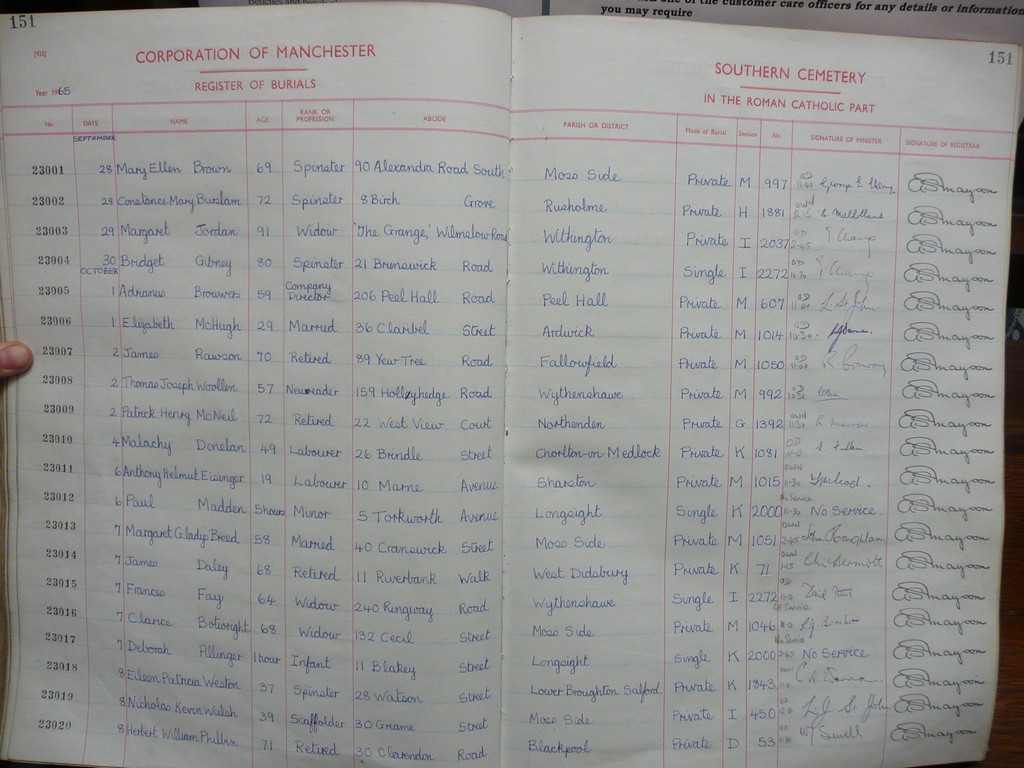 one of the customer care officers for any details or information
you may require
151
151
[932]
CORPORATION OF MANCHESTER
REGISTER OF BURIALS
Year 1965
SOUTHERN CEMETERY
IN THE ROMAN CATHOLIC PART
No. DATE NAME AGE RANK OR PROFESSION ABODE PARISH OR DISTRICT Mode of Burial Section No. SIGNATURE OF MINISTER SIGNATURE OF REGISTRAR
SEPTEMBER
23001 28 Mary Ellen Brown 69 Spinster 90 Alexandra Road South Moss Side Private M 997
23002 28 Constance Mary Burslam 72 Spinster 8 Birch Grove Rusholme Private H 1881
23003 29 Margaret Jordan 91 Widow 'The Grange,' Wilmslow Road Withington Private I 2037 2-45
23004 30 Bridget Gibney 80 Spinster 21 Brunswick Road Withington Single I 2272
OCTOBER
23005 1 Adrianus Brouwers 59 Company Director 206 Peel Hall Road Peel Hall Private M 607 L. St. John
23006 1 Elizabeth McHugh 29 Married 36 Claribel Street Ardwick Private M 1014 10-30
23007 2 James Rawson 70 Retired 89 Yew Tree Road Fallowfield Private M 1050
23008 2 Thomas Joseph Woollen 57 Newsreader 159 Hollyhedge Road Wythenshawe Private M 992
23009 2 Patrick Henry McNeil 72 Retired 22 West View Court Northenden Private G 1392
23010 4 Malachy Donelan 49 Labourer 26 Brindle Street Chorlton-on-Medlock Private K 1081
23011 6 Anthony Helmut Eisinger 19 Labourer 10 Marne Avenue Sharston Private M 1015 11-30
23012 6 Paul Madden 5 hours Minor 5 Torkworth Avenue Longsight Single K 2000 No Service 11-30 No Service.
23013 7 Margaret Gladys Breed 58 Married 40 Cranswick Street Moss Side Private M 1051 2-45
23014 7 James Daley 68 Retired 11 Riverbank Walk West Didsbury Private K 71
23015 7 Frances Fay 64 Widow 240 Ringway Road Wythenshawe Single I 2272
23016 7 Clarice Botwright 68 Widow 132 Cecil Street Moss Side Private M 1046
23017 7 Deborah Pillinger 1 hour Infant 11 Blakey Street Longsight Single K 2000 No Service 2-45 No Service
23018 8 Eileen Patricia Weston 37 Spinster 28 Watson Street Lower Broughton Salford Private K 1843
23019 8 Nicholas Kevin Walsh 39 Scaffolder 30 Greame Street Moss Side Private I 450 L. J. St. John
23020 8 Herbert William Philbin 71 Retired 30 Clarendon Road Blackpool Private D 53